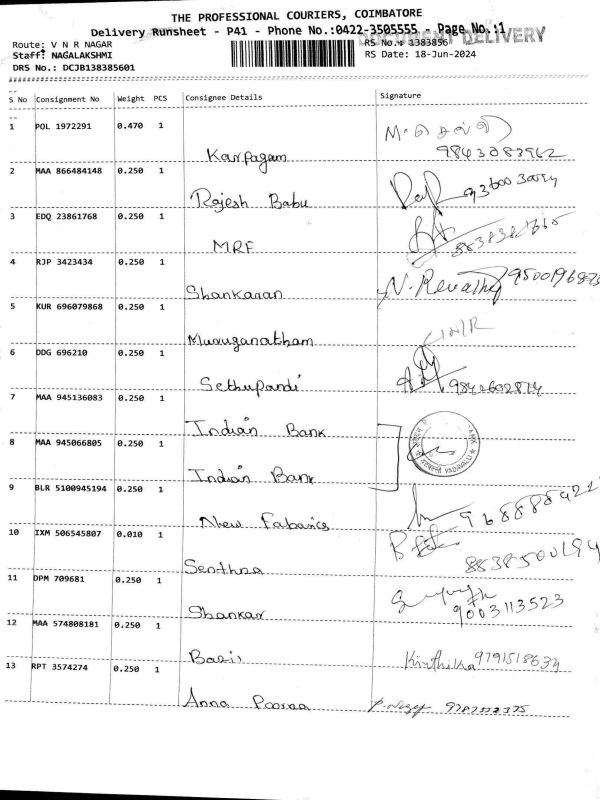 THE PROFESSIONAL COURIERS, COIMBATORE
Delivery Runsheet - P41 - Phone No.:0422-3505555 Page No.:1
DOCUMENT DELIVERY
Route: V N R NAGAR
RS No.: 1383856
Staff: NAGALAKSHMI
RS Date: 18-Jun-2024
DRS No.: DCJB138385601
S No Consignment No Weight PCS Consignee Details Signature
1 POL 1972291 0.470 1 Karpagam
9843083962
2 MAA 866484148 0.250 1 Rajesh Babu
3 EDQ 23861768 0.250 1 MRF
4 RJP 3423434 0.250 1 Shankaran N. Revathy
5 KUR 696079868 0.250 1 Muruganatham
6 DDG 696210 0.250 1 Sethupandi
7 MAA 945136083 0.250 1 Indian Bank
8 MAA 945066805 0.250 1 Indian Bank
9 BLR 5100945194 0.250 1 New Fabarics
10 IXM 506545807 0.010 1 Senthra
8838500194
11 DPM 709681 0.250 1 Shankar
9003113523
12 MAA 574808181 0.250 1 Baais Kirthika 9791518634
13 RPT 3574274 0.250 1 Anna Poorna